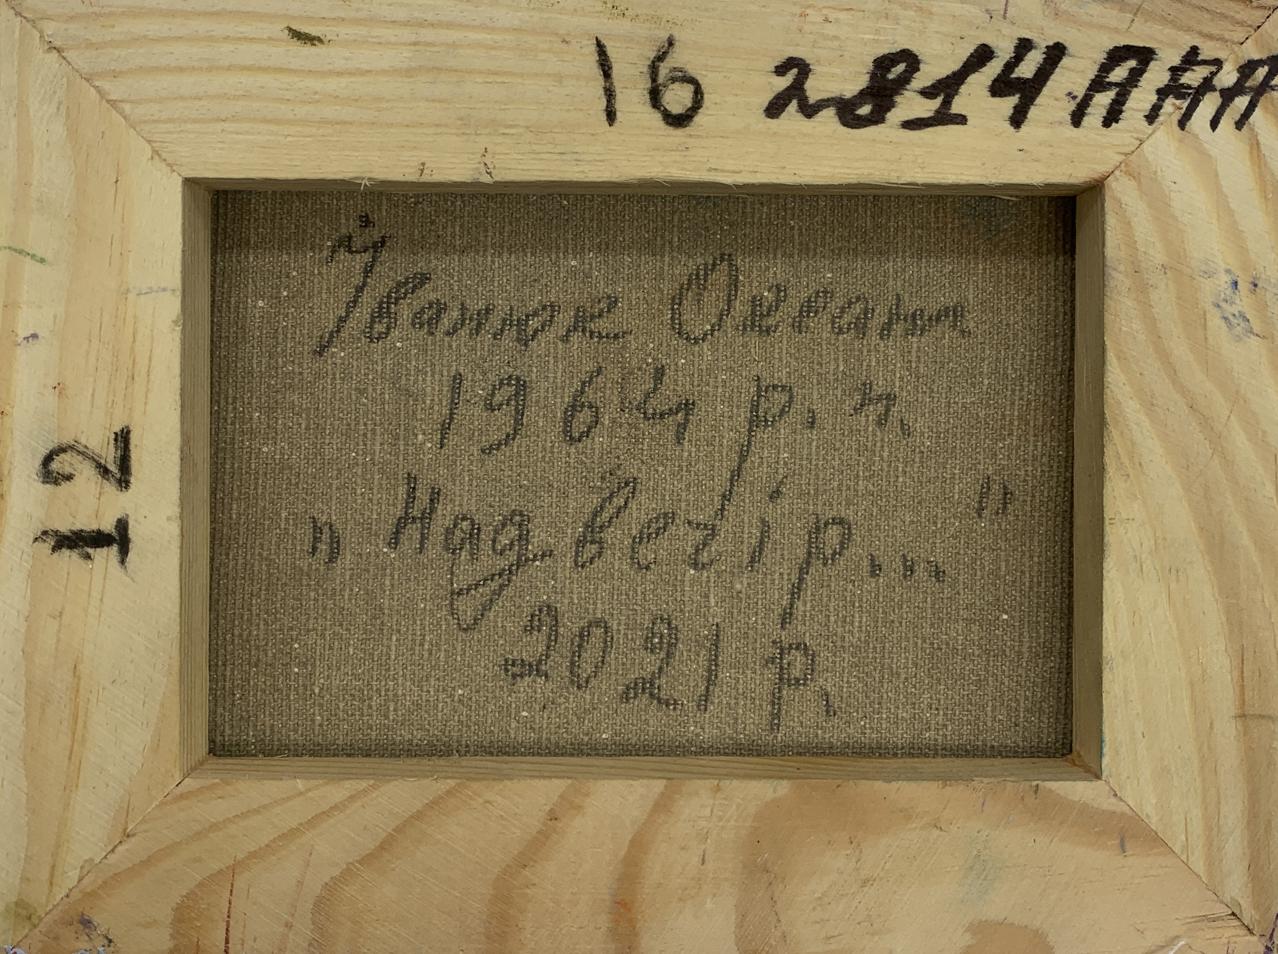 16 2814 ААА
12
Іванюк Олеган
1964 р. н.
„ Надвечір... "
2021 р.